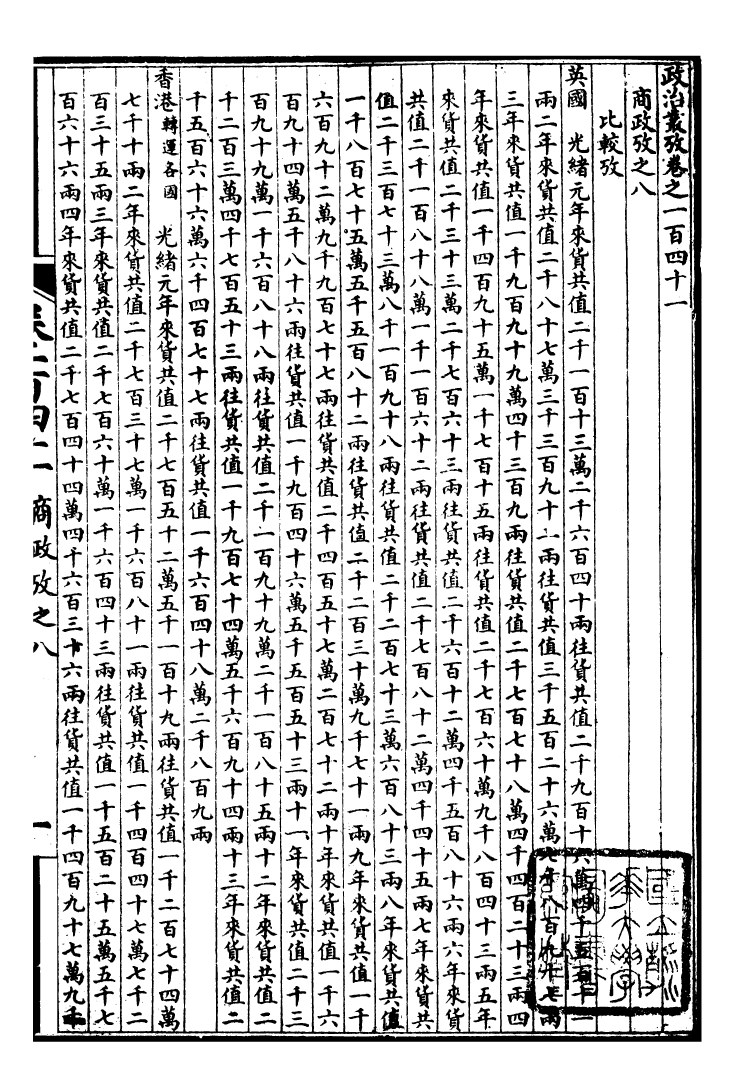 政治叢攷卷之一百四十一
商政攷之八
比較攷
英國　光緒元年來貨共值二千一百十三萬二千六百四十兩往貨共值二千九百十六萬四千五百十一
兩二年來貨共值二千八十七萬三千三百九十一兩往貨共值三千五百二十六萬七千八百九十七兩
三年來貨共值一千九百九十九萬四千三百九兩往貨共值二千七百七十八萬四千四百二十三兩四
年來貨共值一千四百九十五萬一千七百十五兩往貨共值二千七百六十萬九千八百四十三兩五年
來貨共值二千三十三萬二千七百六十三兩往貨共值二千六百十二萬四千五百八十六兩六年來貨
共值二千一百八十八萬一千一百六十二兩往貨共值二千七百八十二萬四千四十五兩七年來貨共
值二千三百七十三萬八千一百九十八兩往貨共值二千二百七十三萬六百八十三兩八年來貨共值
一千八百七十五萬五千五百八十二兩往貨共值二千二百三十萬九千七十一兩九年來貨共值一千
六百九十二萬九千九百七十七兩往貨共值二千四百五十七萬二百七十二兩十年來貨共值一千六
百九十四萬五千八十六兩往貨共值一千九百四十六萬五千五百五十三兩十一年來貨共值二千三
百九十九萬一千六百八十八兩往貨共值二千一百九十九萬二千一百八十五兩十二年來貨共值二
千二百三萬四千七百五十三兩往貨共值一千九百七十四萬五千六百九十四兩十三年來貨共值二
千五百六十六萬六千四百七十七兩往貨共值一千六百四十八萬二千八百九兩
香港轉運各國　光緒元年來貨共值二千七百五十二萬五千一百十九兩往貨共值一千二百七十四萬
七千十兩二年來貨共值二千七百三十七萬一千六百八十一兩往貨共值一千四百四十七萬七千二
百三十五兩三年來貨共值二千七百六十萬一千六百四十三兩往貨共值一千五百二十五萬五千七
百六十六兩四年來貨共值二千七百四十四萬四千六百三十六兩往貨共值一千四百九十七萬九千
卷一百四十一　商政攷之八　一